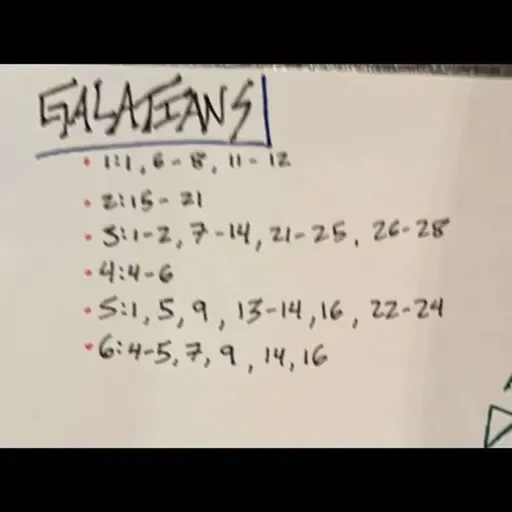 GALATIANS
• 1:1, 6-8, 11-12
• 2:15-21
• 3:1-2, 7-14, 21-25, 26-28
• 4:4-6
• 5:1, 5, 9, 13-14, 16, 22-24
• 6:4-5, 7, 9, 14, 16